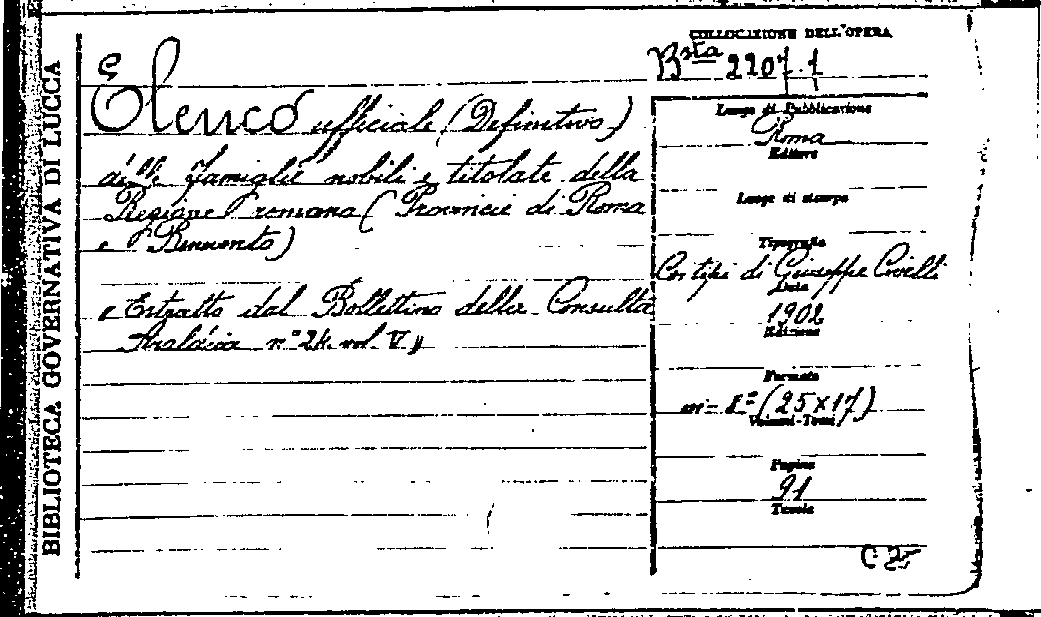 BIBLIOTECA GOVERNATIVA DI LUCCA
COLLOCAZIONE DELL'OPERA
Bsta 2207.1
Elenco ufficiale (Definitivo)
delle famiglie nobili e titolate della
Regione romana (Provincie di Roma
e Benevento)
Estratto dal Bollettino della Consulta
Araldica n.° 24. vol. V
Luogo di Pubblicazione
Roma
Editore
Luogo di stampa
Tipografia
Coi tipi di Giuseppe Civelli
Data
1902
Edizione
Formato
in-8° (25x17)
Volumi-Tomi
Pagine
91
Tavole